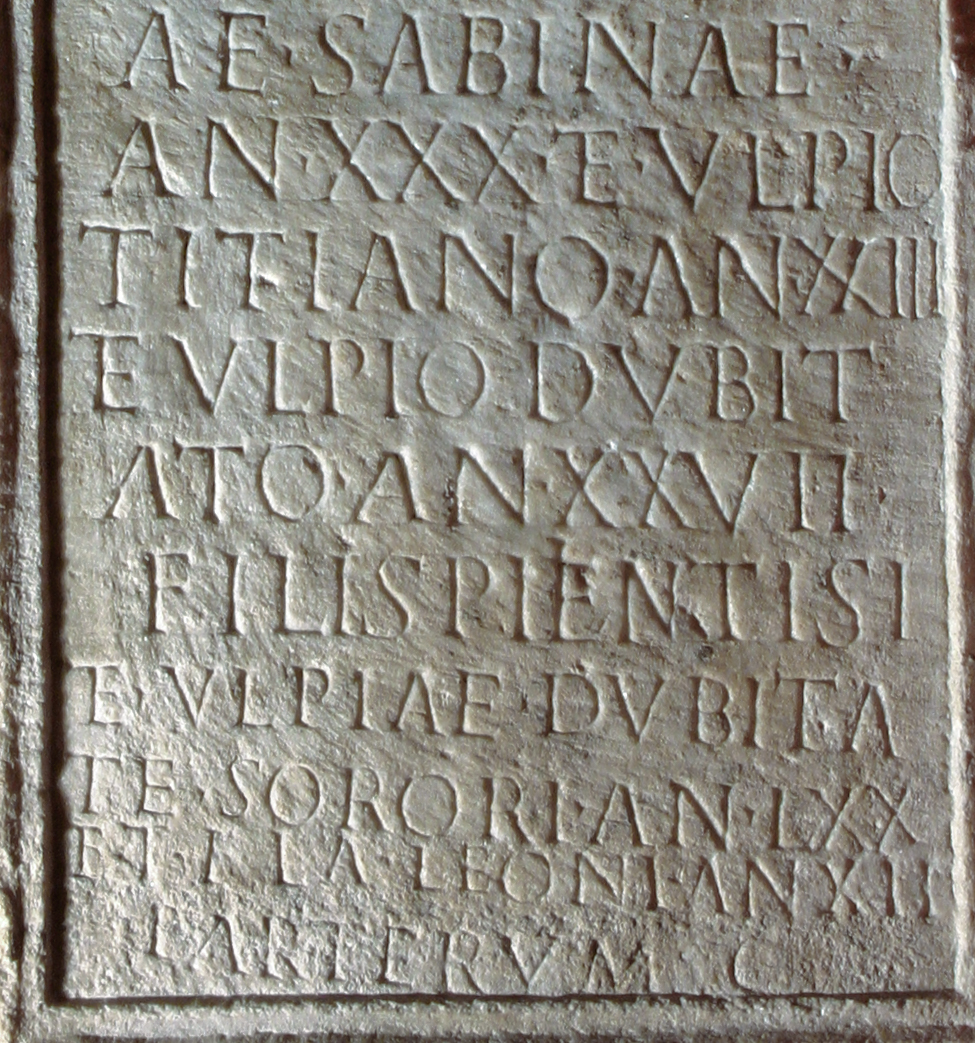 AE·SABINAE·
AN·XXX·ET·VLPIO
TITIANO·AN·XXIIII
ET VLPIO DVBIT
ATO·AN·XXVII·
FILIS PIENTISI
ET·VLPIAE·DVBITA
TE·SORORI·AN·LXX
ET LEONI·AN·XII
PARTERVM·C